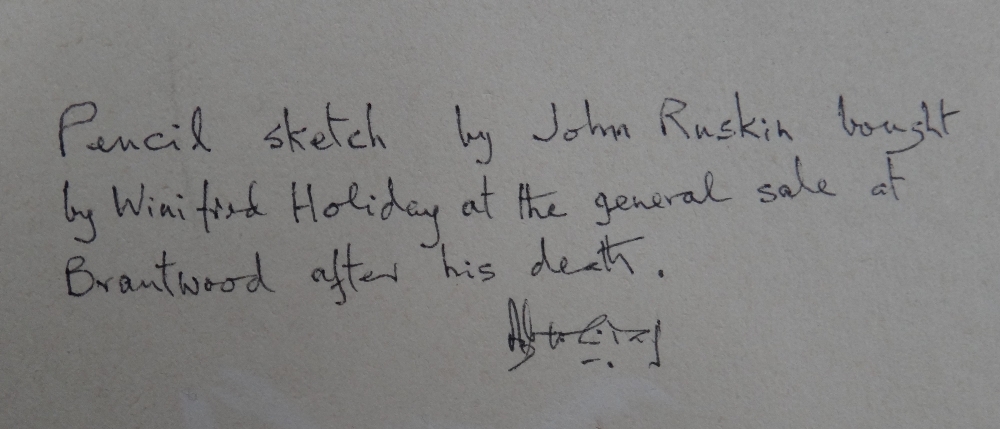 Pencil sketch by John Ruskin bought
by Winifred Holiday at the general sale at
Brantwood after his death.